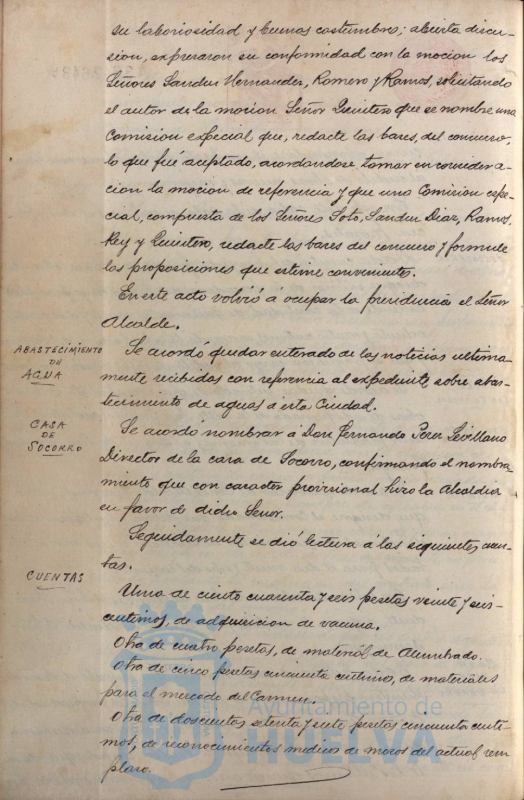 su laboriosidad y buenas costumbres; abierta discu-
sion, expresaron su conformidad con la mocion los
Señores Sandus Hernandez, Romero y Ramos, solicitando
el autor de la mocion Señor Quintero que se nombre una
Comision especial que, redacte las bases, del concurso,
lo que fué aceptado, acordandose tomar en consider a-
cion la mocion de referencia y que una Comision espe-
cial, compuesta de los Señores Soto, Sandus Diaz, Ramos,
Rey y Quintero, redacte las bases del concurso y formule
las proposiciones que estime convenientes.
En este acto volvió á ocupar la presidencia el Señor
Alcalde.
ABASTECIMIENTO
DE
AGUA
Se acordó quedar enterado de las noticias ultima-
mente recibidas con referencia al expediente sobre abas-
tecimiento de aguas á esta Ciudad.
CASA
DE
SOCORRO
Se acordó nombrar á Don Fernando Perez Sevillano
Director de la casa de Socorro, confirmando el nombra-
miento que con caracter provisional hizo la Alcaldia
en favor de dicho Señor.
Seguidamente se dió lectura á las siguientes cuen-
tas.
CUENTAS
Una de ciento cuarenta y seis pesetas veinte y seis
centimos, de adquisicion de vacuna.
Otra de cuatro pesetas, de material de Alumbrado.
Otra de cinco pesetas cincuenta centimos, de materiales
para el mercado del Carmen.
Otra de doscientas setenta y siete pesetas cincuenta centi-
mos, de reconocimientos medicos de mozos del actual rem
plazo.
Ayuntamiento de
HUELVA